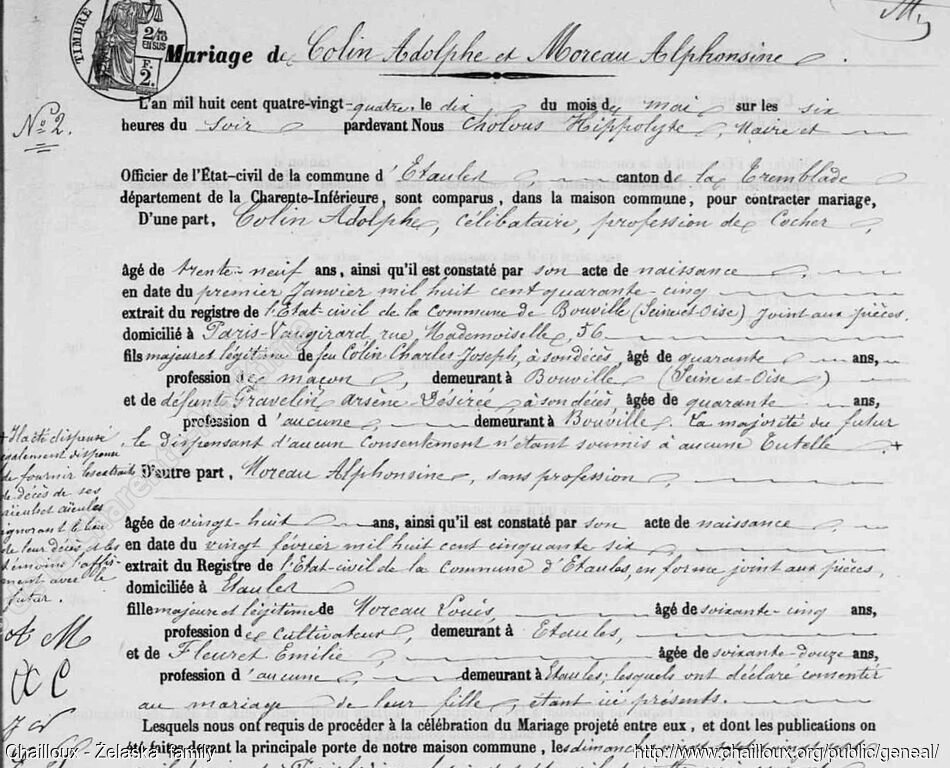 TIMBRE
2/10 EN SUS
F. 2.
Mariage de Colin Adolphe et Moreau Alphonsine.
N° 2.
L'an mil huit cent quatre-vingt-quatre, le dix du mois de mai sur les six
heures du soir pardevant Nous Cholous Hippolyte, Maire et
Officier de l'État-civil de la commune d'Etaules canton de la Tremblade
département de la Charente-Inférieure, sont comparus, dans la maison commune, pour contracter mariage,
D'une part, Colin Adolphe, célibataire, profession de Cocher,
âgé de trente-neuf ans, ainsi qu'il est constaté par son acte de naissance,
en date du premier Janvier mil huit cent quarante-cinq
extrait du registre de l'Etat-civil de la Commune de Bouville (Seine et Oise) joint aux pièces,
domicilié à Paris-Vaugirard rue Mademoiselle, 56
fils majeur et légitime de feu Colin Charles Joseph, à son décès, âgé de quarante ans,
profession de maçon, demeurant à Bouville (Seine-et-Oise)
et de défunt Gravelin Arsène Désirée, à son décès, âgée de quarante ans,
profession d'aucune demeurant à Bouville. La majorité du futur
le dispensant d'aucun consentement n'étant soumis à aucune Tutelle. +
+ Il a été dispensé
également
de fournir les extraits
de décès de ses
aïeuls et aïeules
ignorant le lieu
de leur décès, et les
témoins l'affir-
ment avec le
futur.
A M
A C
D'autre part, Moreau Alphonsine, sans profession,
âgée de vingt-huit ans, ainsi qu'il est constaté par son acte de naissance,
en date du vingt février mil huit cent cinquante six
extrait du Registre de l'Etat-civil de la Commune d'Etaules, en forme joint aux pièces,
domiciliée à Etaules
fille majeure et légitime de Moreau Louis, âgé de soixante-cinq ans,
profession de cultivateur, demeurant à Etaules,
et de Fleuret Emilie, âgée de soixante-douze ans,
profession d'aucune demeurant à Etaules; lesquels ont déclaré consentir
au mariage de leur fille, étant ici présents.
Lesquels nous ont requis de procéder à la célébration du Mariage projeté entre eux, et dont les publications on
été faites devant la principale porte de notre maison commune, les dimanches
Chailloux - Żelaska family
http://www.chailloux.org/public/geneal/